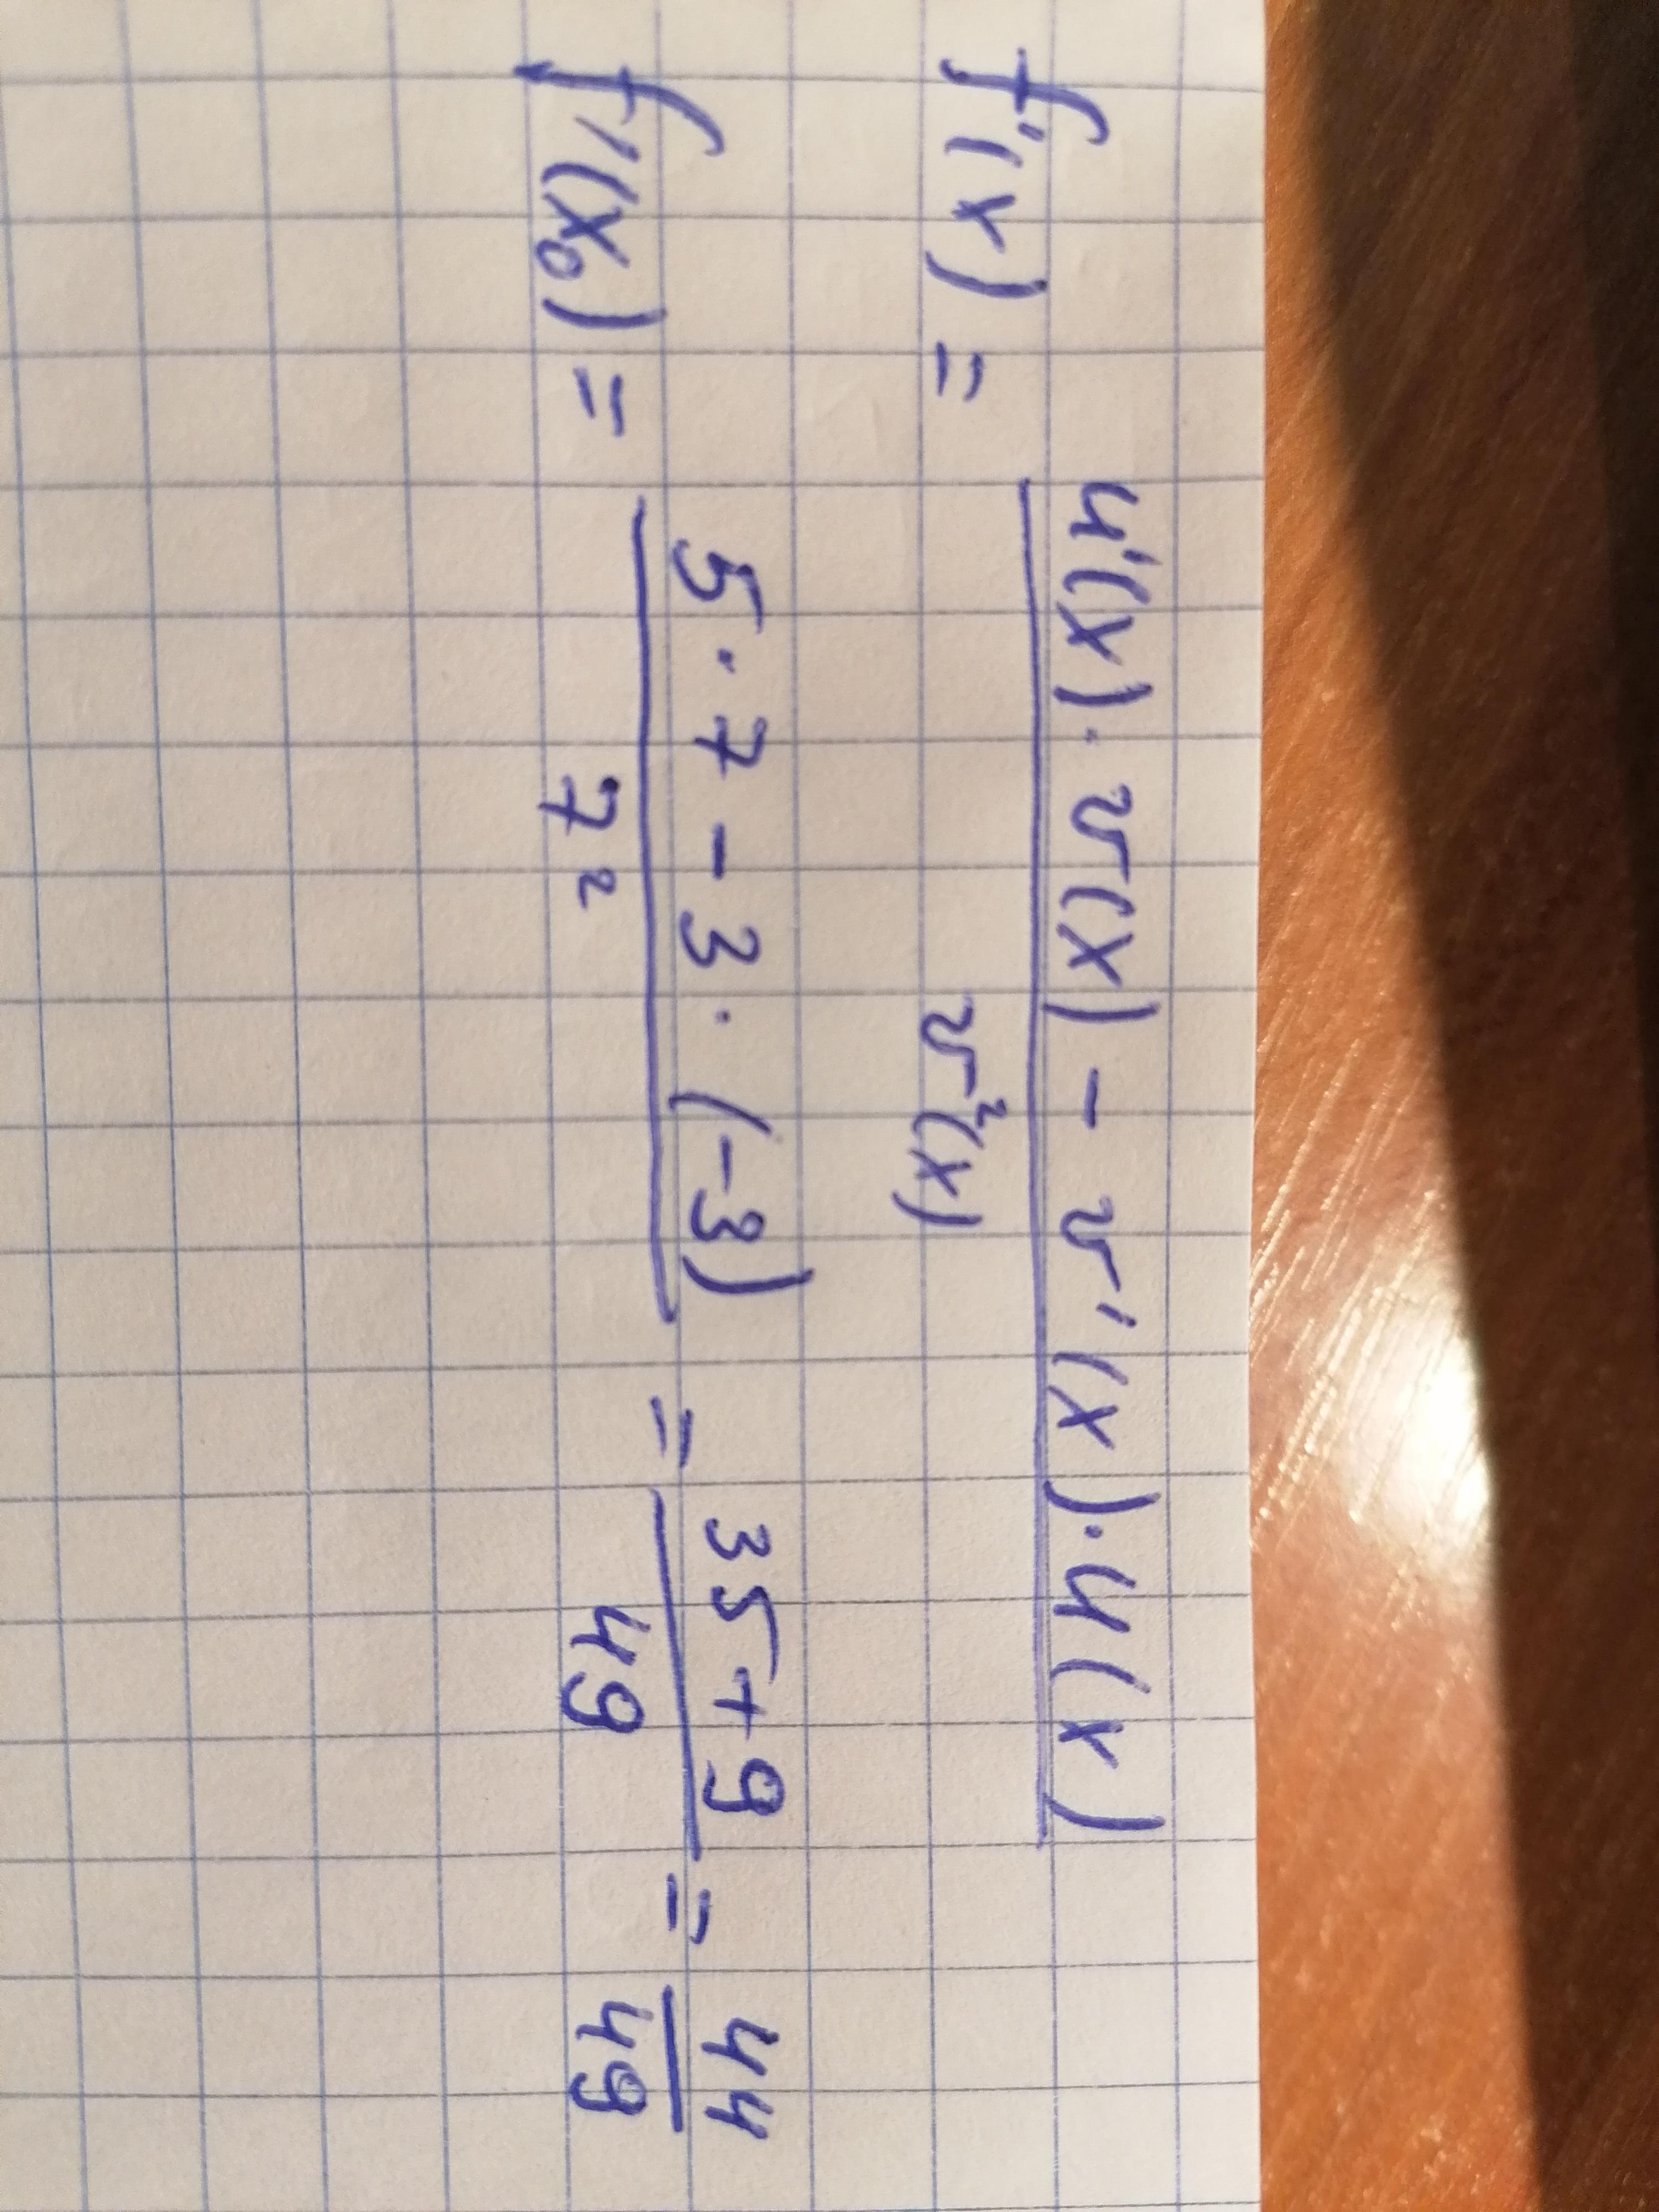 f'(x) = (u'(x) · v(x) - v'(x) · u(x)) / v²(x)
f'(x₀) = (5 · 7 - 3 · (-3)) / 7² = (35 + 9) / 49 = 44 / 49